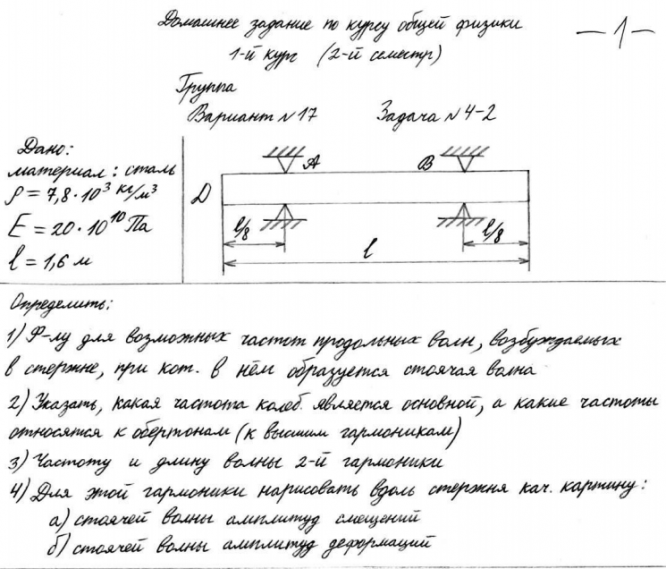 Домашнее задание по курсу общей физики
— 1 —
1-й курс (2-й семестр)
Группа
Вариант № 17 Задача № 4-2
Дано:
материал: сталь
ρ = 7,8·10³ кг/м³
E = 20·10¹⁰ Па
l = 1,6 м
A B
D
l/8 l/8
l
Определить:
1) Ф-лу для возможных частот продольных волн, возбуждаемых
в стержне, при кот. в нём образуется стоячая волна
2) Указать, какая частота колеб. является основной, а какие частоты
относятся к обертонам (к высшим гармоникам)
3) Частоту и длину волны 2-й гармоники
4) Для этой гармоники нарисовать вдоль стержня кач. картину:
а) стоячей волны амплитуд смещений
б) стоячей волны амплитуд деформаций